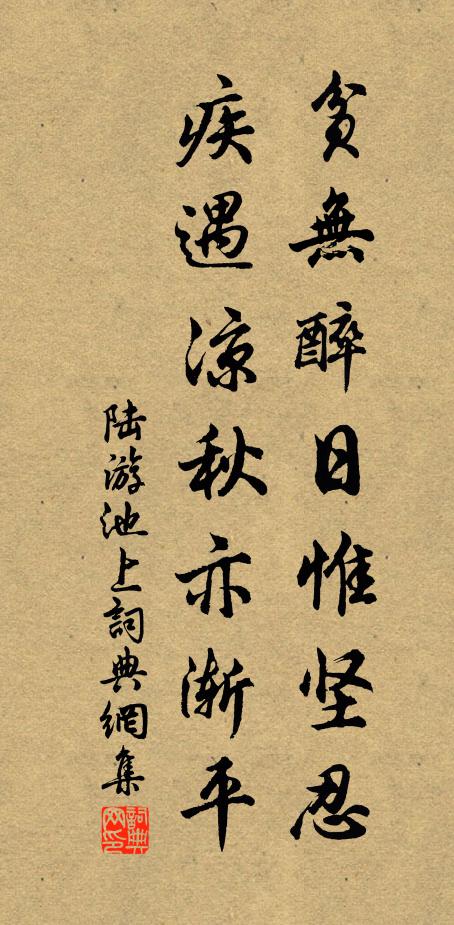 貧無醉日惟坚忍
疾遇凉秋亦渐平
陆游池上詞典網集
詞典网印